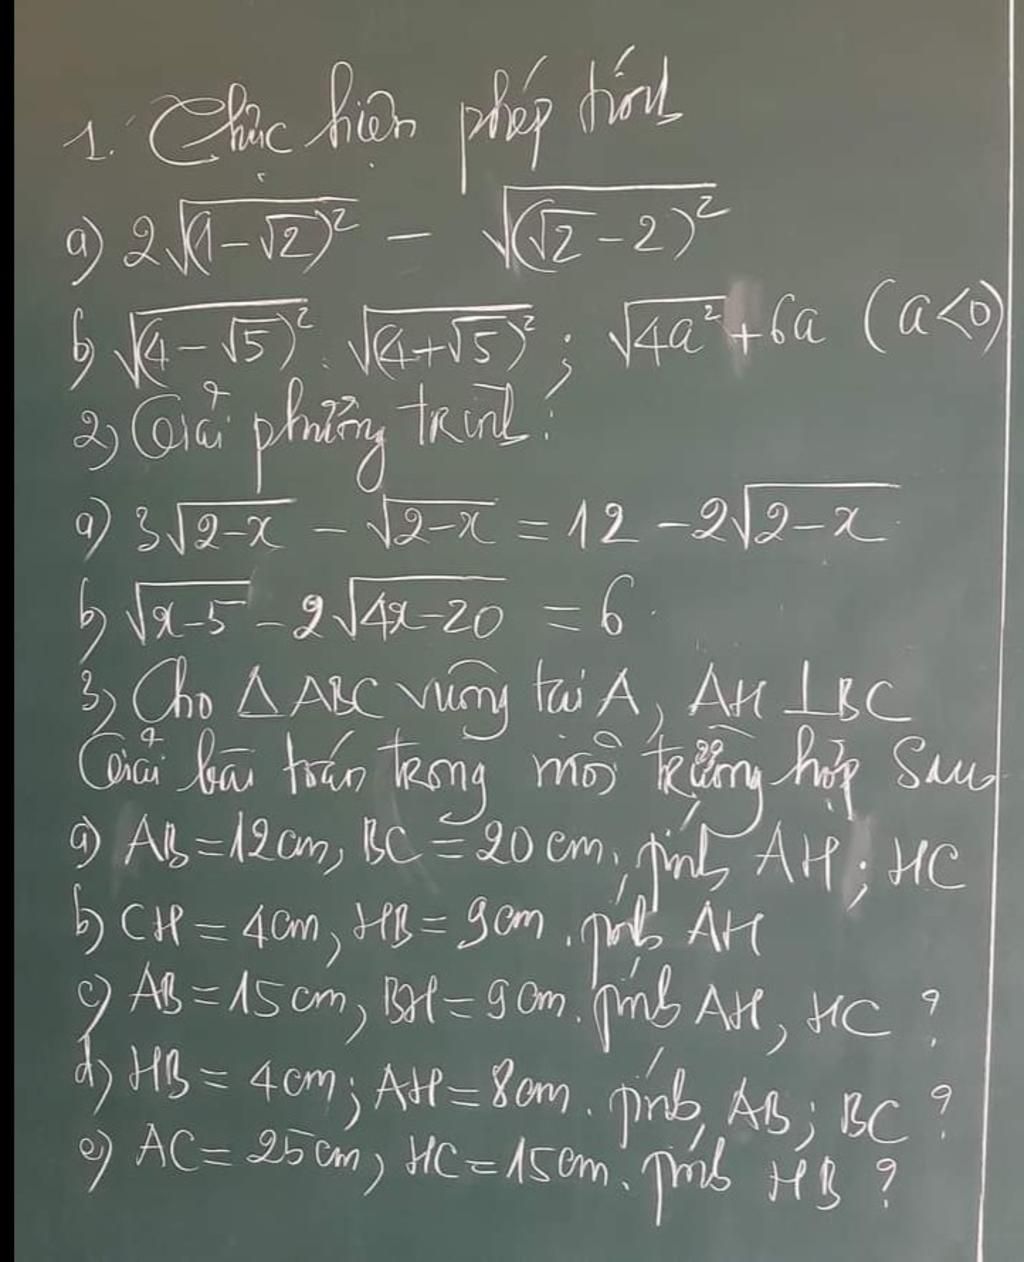 1. Thực hiện phép tính
a) 2√(1-√2)² - √(√2-2)²
b) √(4-√5)² . √(4+√5)² ; √4a² + 6a (a<0)
2) Giải phương trình:
a) 3√2-x - √2-x = 12 - 2√2-x
b) √x-5 - 2√4x-20 = 6.
3) Cho △ABC vuông tại A, AH ⊥ BC
Giải bài toán trong mỗi trường hợp sau
a) AB = 12cm, BC = 20cm, tính AH ; HC
b) CH = 4cm, HB = 9cm. tính AH
c) AB = 15cm, BH = 9cm. tính AH, HC ?
d) HB = 4cm; AH = 8cm. tính AB; BC ?
e) AC = 25cm, HC = 15cm. tính HB ?